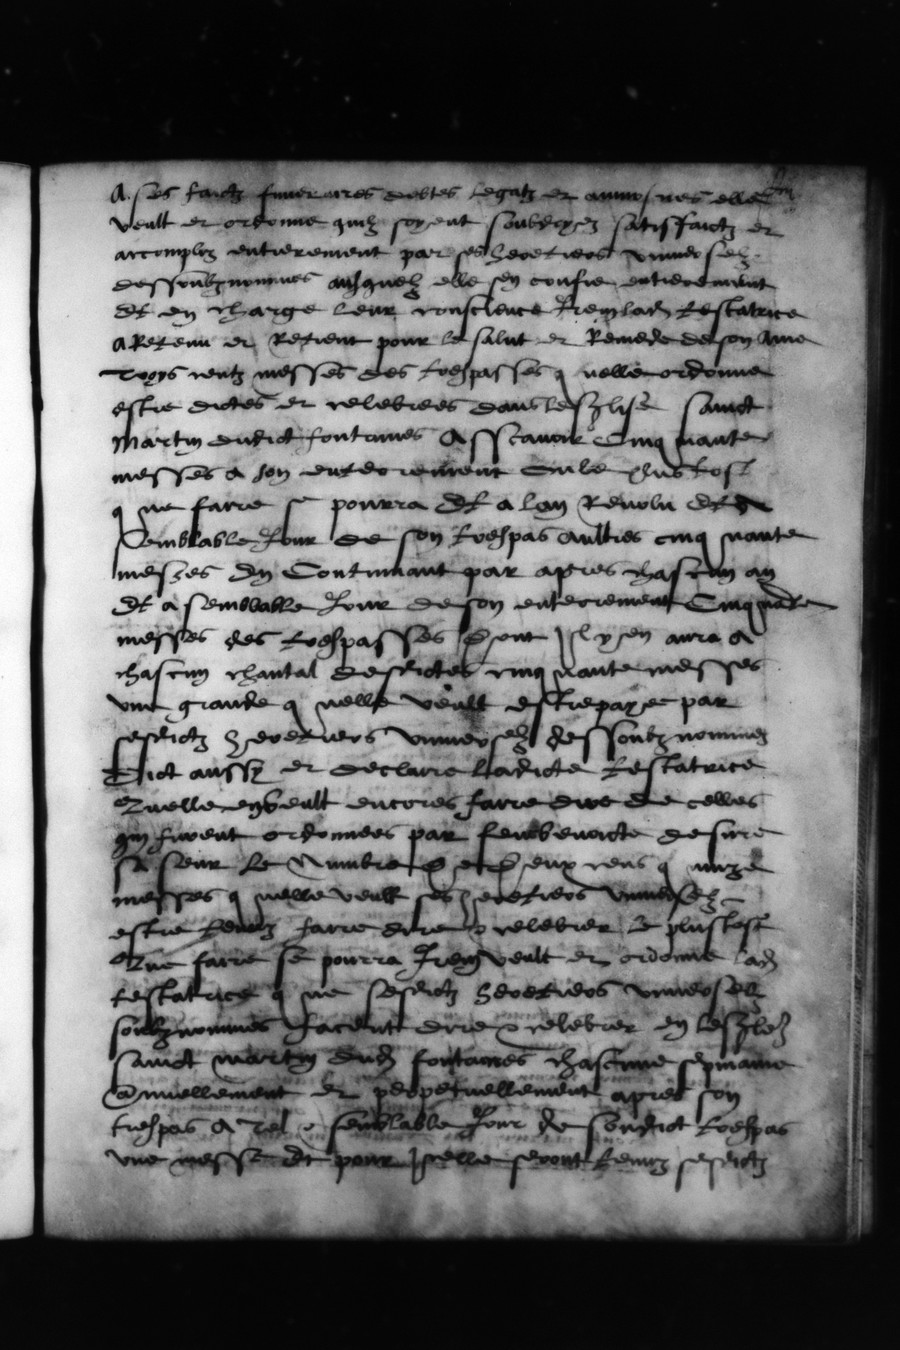 A ses faictz funeraires debtes legatz et aumosnes elle
veult et ordonne quilz soyent satisfaictz et
accomplyz entierement par ses heretiers universelz
dessoubz nommes ausquelz elle sen confie entierement
Et en charge leur conscience Item lad testatrice
A Retenu et Retient pour le salut et Remede de son Ame
Troys centz messes des trespasses quelle ordonne
estre dictes et celebrees dans leglise sainct
Martin dudict fontaines Asscavoir Cinquante
messes a son enterrement ou le plus tost
que faire se pourra Et a lan Revolu Et a
semblable Jour de son trespas aultres cinquante
messes En Continuant par apres chascun an
Et a semblable Jour de son enterrement Cinquante
messes des trespasses Il y en aura a
chascun chantal desdictes cinquante messes
une grande quelle veult estre payee par
sesdictz heretiers universelz dessoubz nommez
Dict aussy et declaire ladicte testatrice
Quelle en veult encores faire dire de celles
qui furent ordonnees par feu
sa seur le Numbre quinze
messes quelle veult ses heretiers universelz
estre tenuz faire dire et celebrer le plus tost
Que faire se pourra Item veult et ordonne lad
testatrice que sesdictz heretiers universelz
soubz nommes facent dire et celebrer en leglise
sainct martin dud fontaines chascune sepmaine
Annuellement et perpetuellement apres son
trespas A tel et semblable Jour de sondict trespas
une messe Et pour Icelle seront tenuz sesdictz